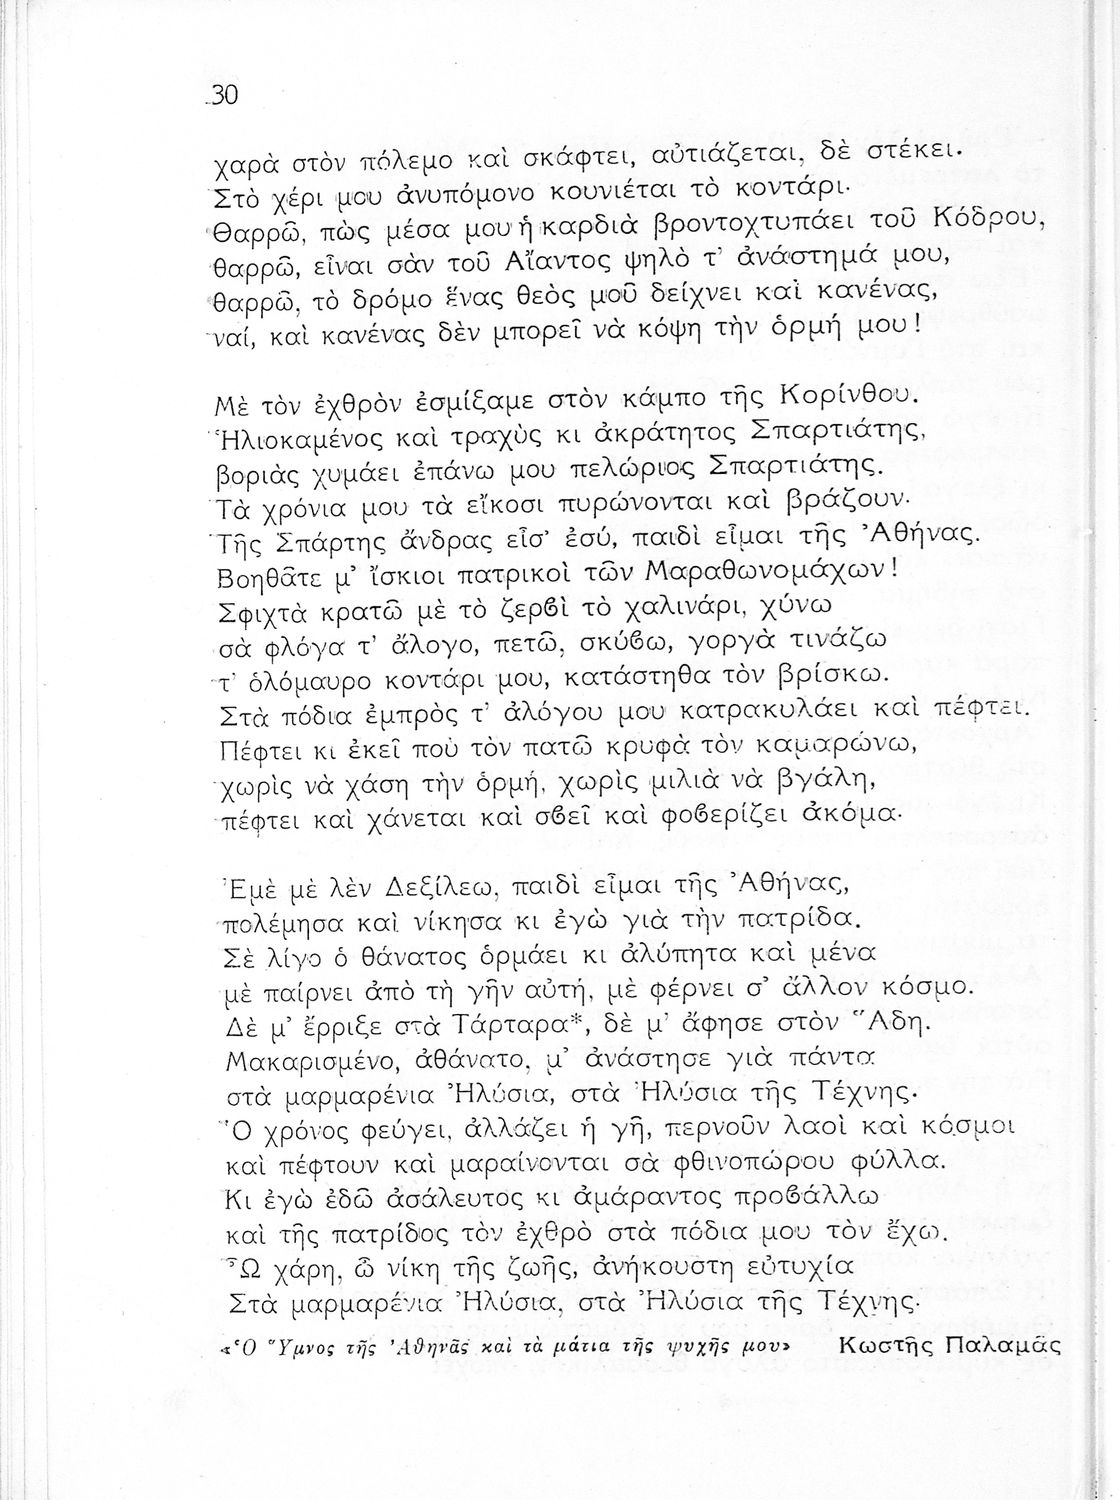 30
χαρὰ στὸν πόλεμο καὶ σκάφτει, αὐτιάζεται, δὲ στέκει.
Στὸ χέρι μου ἀνυπόμονο κουνιέται τὸ κοντάρι.
Θαρρῶ, πὼς μέσα μου ἡ καρδιὰ βροντοχτυπάει τοῦ Κόδρου,
θαρρῶ, εἶναι σὰν τοῦ Αἴαντος ψηλὸ τ' ἀνάστημά μου,
θαρρῶ, τὸ δρόμο ἕνας θεὸς μοῦ δείχνει καὶ κανένας,
ναί, καὶ κανένας δὲν μπορεῖ νὰ κόψη τὴν ὁρμή μου!
Μὲ τὸν ἐχθρὸν ἐσμίξαμε στὸν κάμπο τῆς Κορίνθου.
Ἡλιοκαμένος καὶ τραχὺς κι ἀκράτητος Σπαρτιάτης,
βοριὰς χυμάει ἐπάνω μου πελώριος Σπαρτιάτης.
Τὰ χρόνια μου τὰ εἴκοσι πυρώνονται καὶ βράζουν.
Τῆς Σπάρτης ἄνδρας εἶσ' ἐσύ, παιδὶ εἶμαι τῆς Ἀθήνας.
Βοηθᾶτε μ' ἴσκιοι πατρικοὶ τῶν Μαραθωνομάχων!
Σφιχτὰ κρατῶ μὲ τὸ ζερβὶ τὸ χαλινάρι, χύνω
σὰ φλόγα τ' ἄλογο, πετῶ, σκύβω, γοργὰ τινάζω
τ' ὁλόμαυρο κοντάρι μου, κατάστηθα τὸν βρίσκω.
Στὰ πόδια ἐμπρὸς τ' ἀλόγου μου κατρακυλάει καὶ πέφτει.
Πέφτει κι ἐκεῖ ποὺ τὸν πατῶ κρυφὰ τὸν καμαρώνω,
χωρὶς νὰ χάση τὴν ὁρμή, χωρὶς μιλιὰ νὰ βγάλη,
πέφτει καὶ χάνεται καὶ σβεῖ καὶ φοβερίζει ἀκόμα.
Ἐμὲ μὲ λὲν Δεξίλεω, παιδὶ εἶμαι τῆς Ἀθήνας,
πολέμησα καὶ νίκησα κι ἐγὼ γιὰ τὴν πατρίδα.
Σὲ λίγο ὁ θάνατος ὁρμάει κι ἀλύπητα καὶ μένα
μὲ παίρνει ἀπὸ τὴ γῆν αὐτή, μὲ φέρνει σ' ἄλλον κόσμο.
Δὲ μ' ἔρριξε στὰ Τάρταρα*, δὲ μ' ἄφησε στὸν Ἅδη.
Μακαρισμένο, ἀθάνατο, μ' ἀνάστησε γιὰ πάντα
στὰ μαρμαρένια Ἠλύσια, στὰ Ἠλύσια τῆς Τέχνης.
Ὁ χρόνος φεύγει, ἀλλάζει ἡ γῆ, περνοῦν λαοὶ καὶ κόσμοι
καὶ πέφτουν καὶ μαραίνονται σὰ φθινοπώρου φύλλα.
Κι ἐγὼ ἐδῶ ἀσάλευτος κι ἀμάραντος προβάλλω
καὶ τῆς πατρίδος τὸν ἐχθρὸ στὰ πόδια μου τὸν ἔχω.
Ὦ χάρη, ὦ νίκη τῆς ζωῆς, ἀνήκουστη εὐτυχία
Στὰ μαρμαρένια Ἠλύσια, στὰ Ἠλύσια τῆς Τέχνης.
«Ὁ Ὕμνος τῆς Ἀθηνᾶς καὶ τὰ μάτια τῆς ψυχῆς μου» Κωστῆς Παλαμᾶς